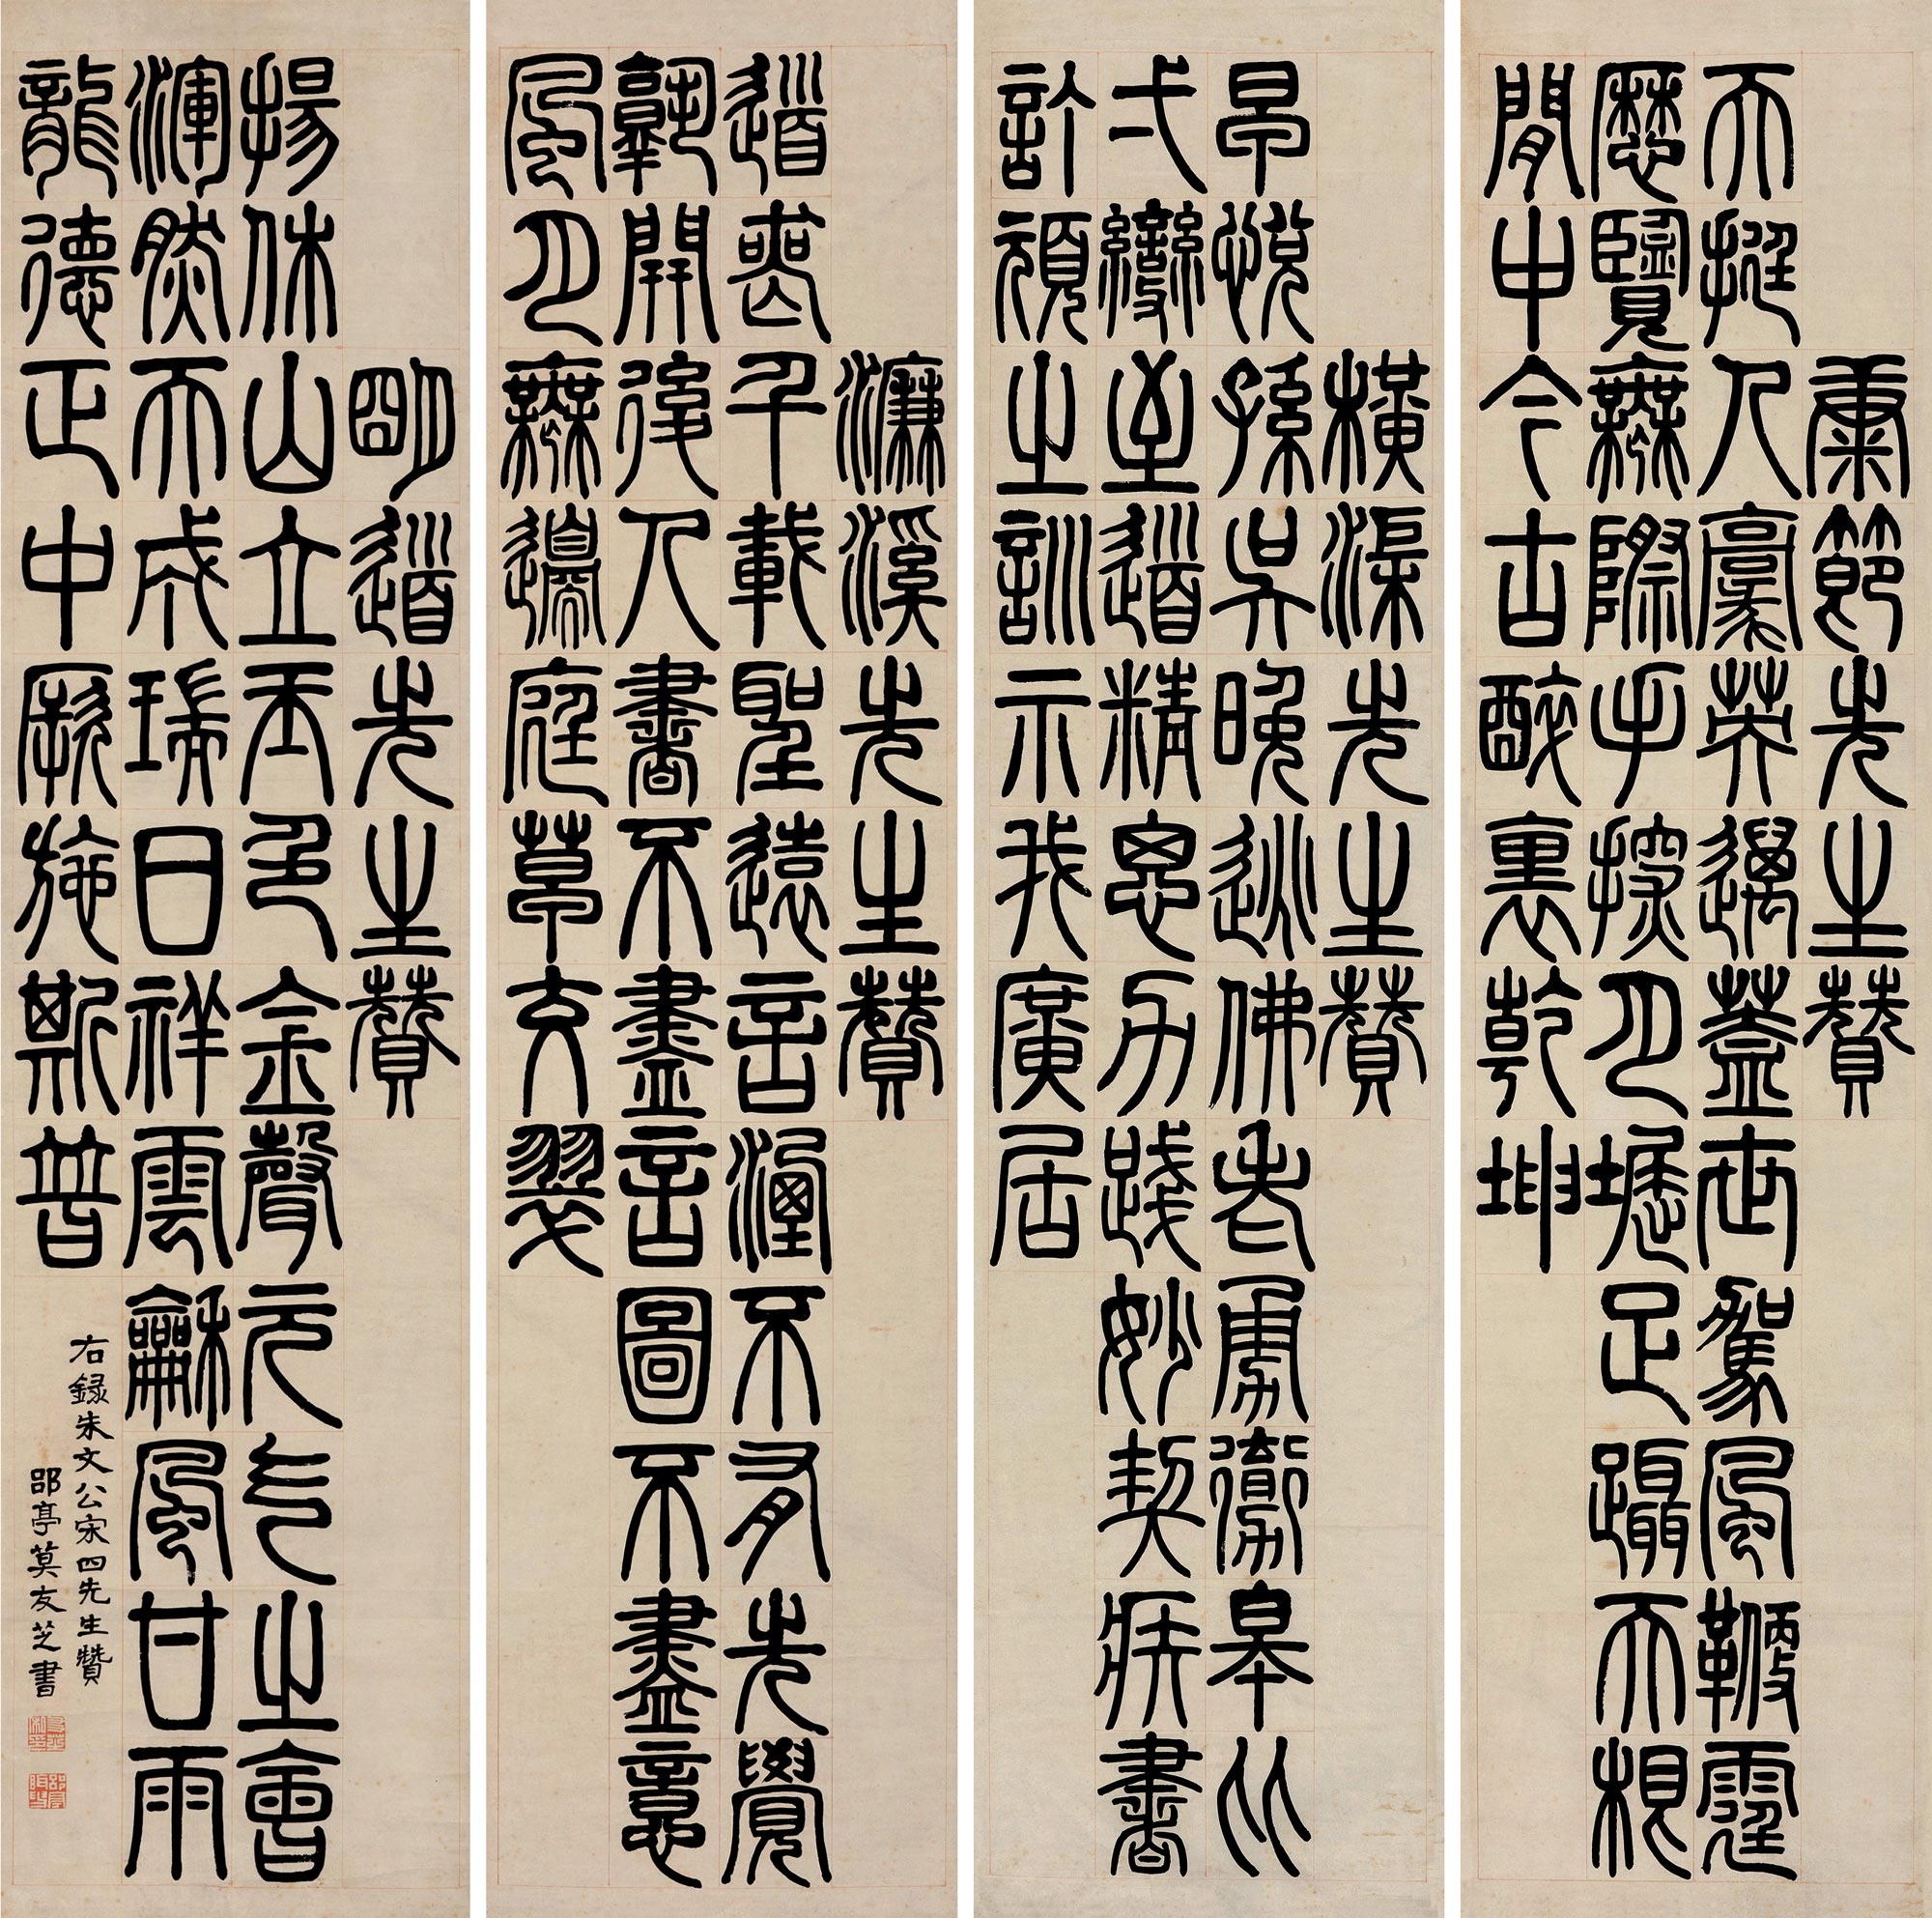 康節先生贊
天挺人豪英邁蓋世駕風鞭霆
歷覽無際手探月堀足躡天根
閒中今古醉裏乾坤
橫渠先生贊
早悅孫吳晚逃佛老勇撤皋比
弌變至道精思力踐妙契疾書
訂頑之訓示我廣居
濂溪先生贊
道喪千載聖遠言湮不有先覺
孰開後人書不盡言圖不盡意
風月無邊庭草交翠
明道先生贊
揚休山立玉色金聲元气之會
渾然天成瑞日祥雲龢風甘雨
龍德正中厥施斯普
右録朱文公宋四先生贊
郘亭莫友芝書
友芝私印
郘亭眲叟